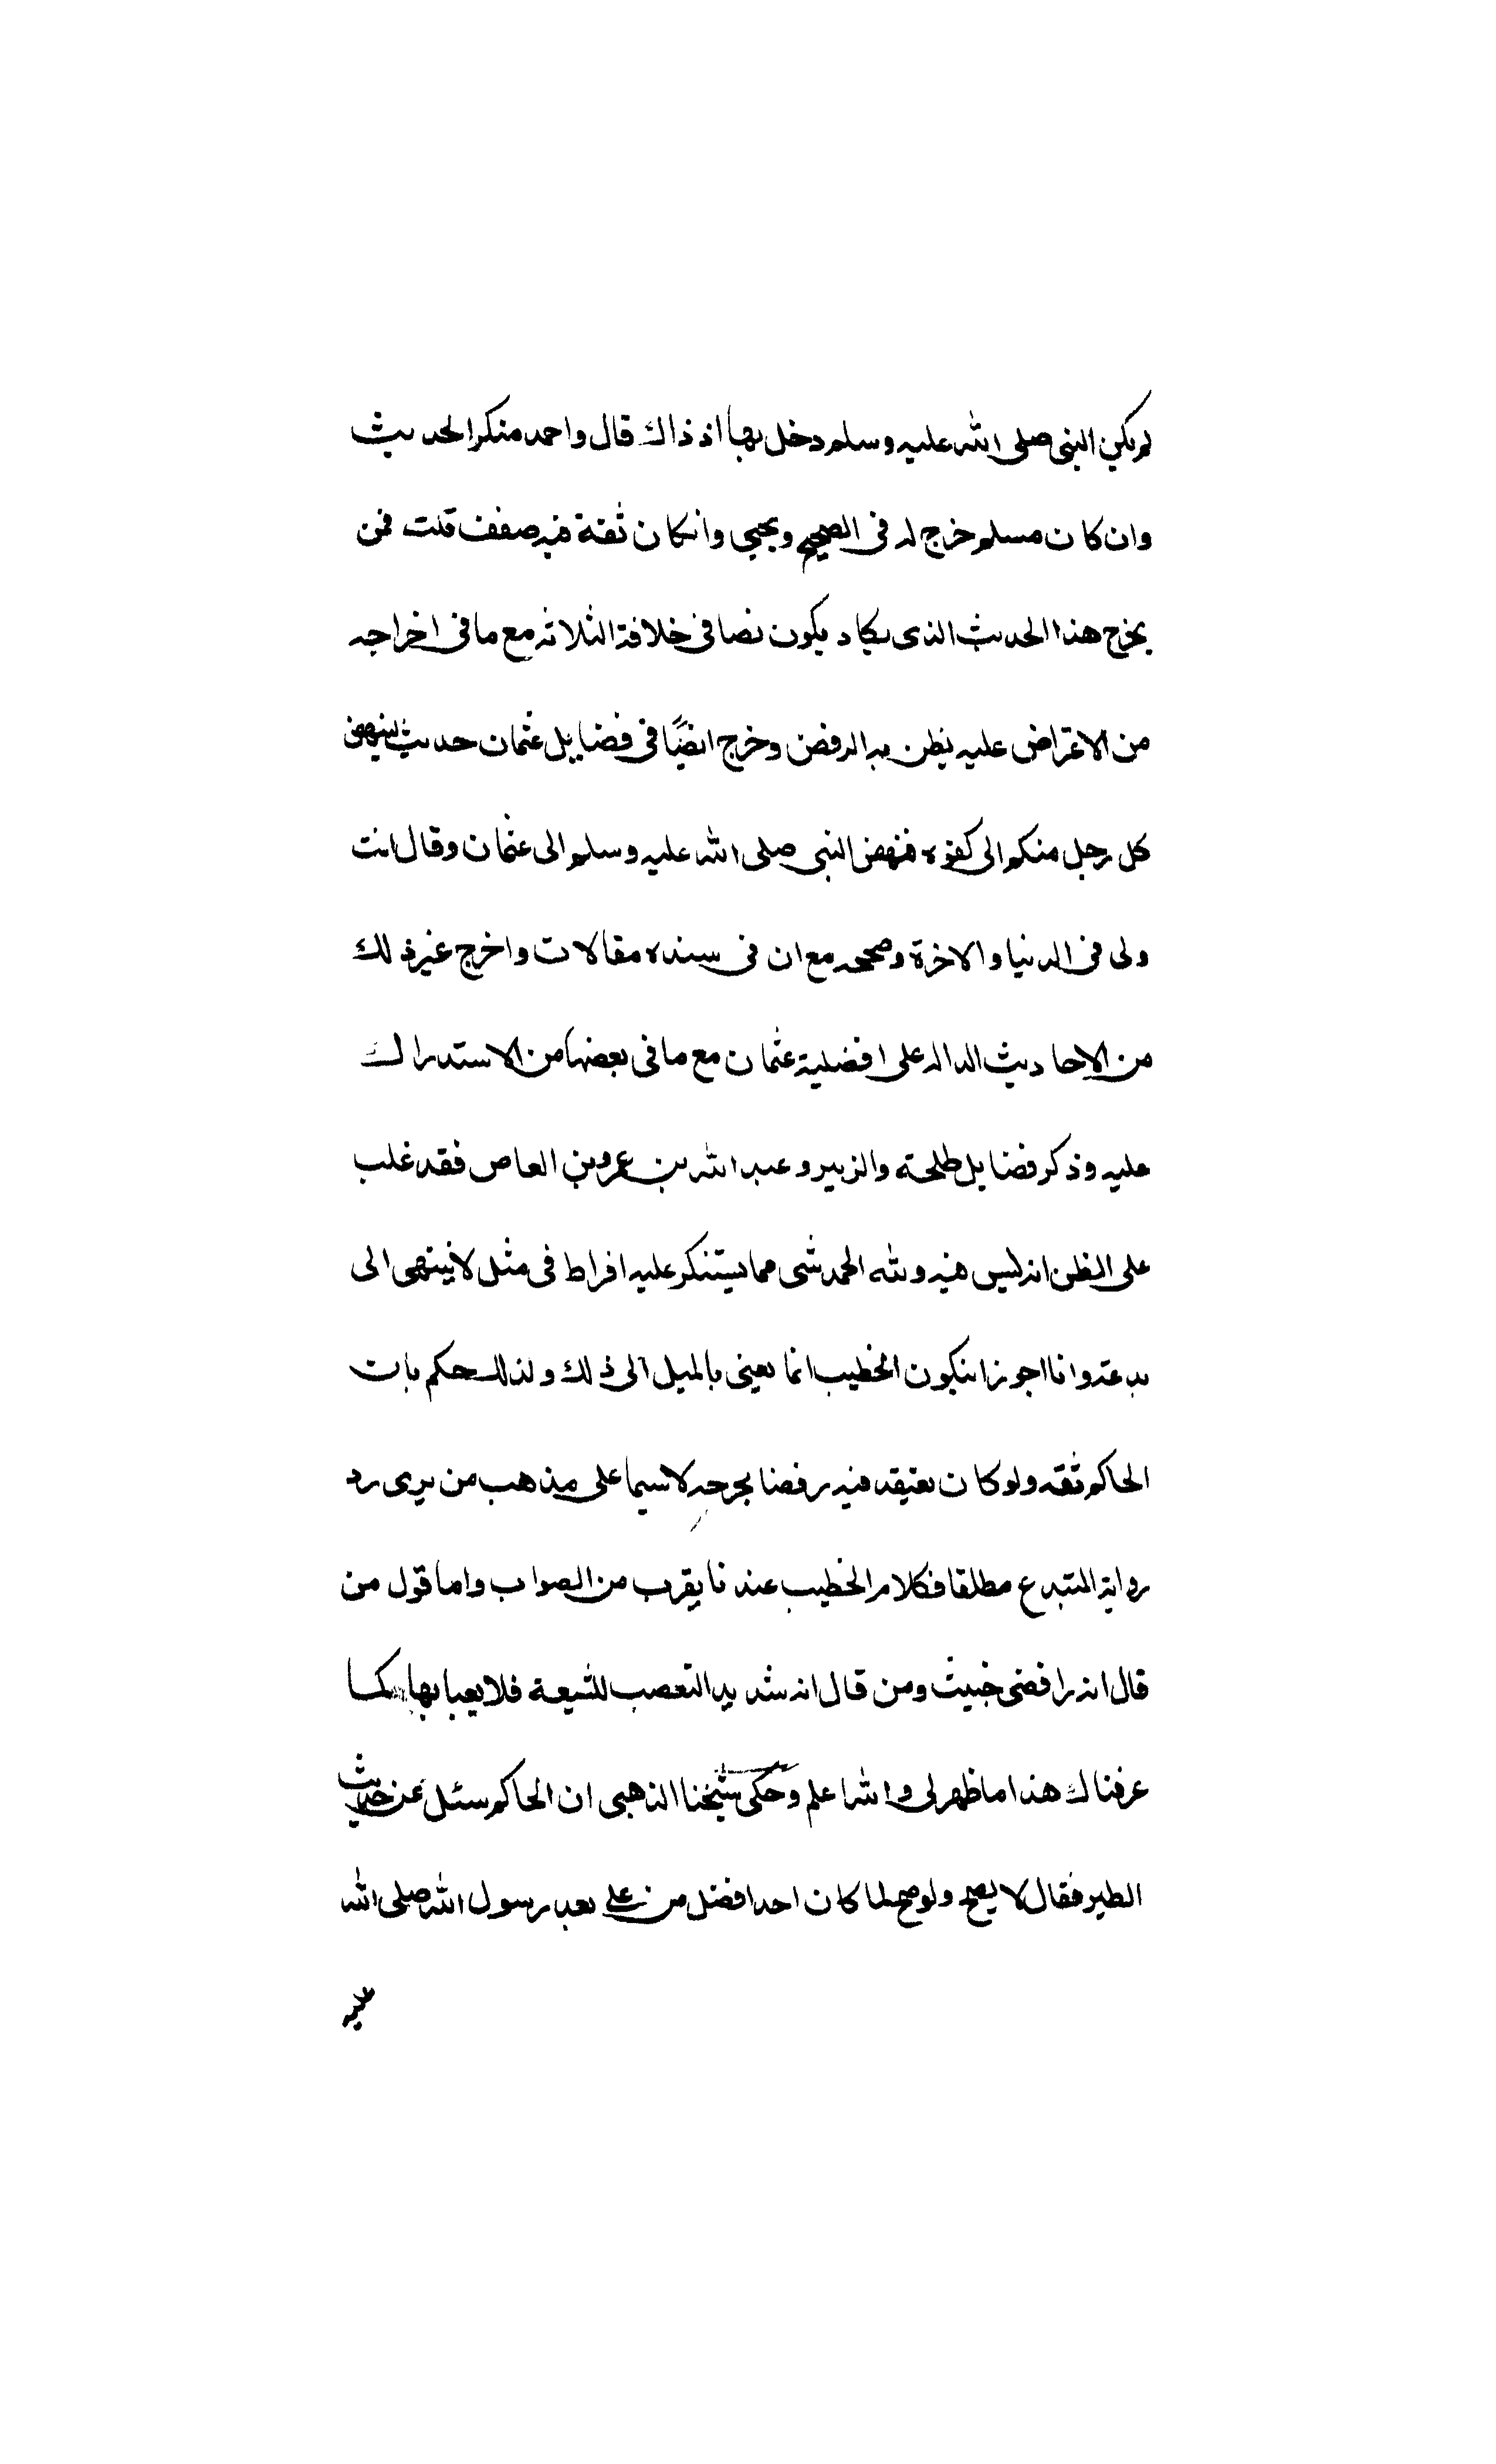 لم يكن النبى صلى الله عليه وسلم دخل بها اذ ذاك قال واحمد منكر الحديث
وان كان مسلم خرج له فى الصحيح ويحيى وان كان ثقة فيه ضعف قلت فمن
يخرج هذا الحديث الذى يكاد يكون نصا فى خلافة الثلاثه مع ما فى اخراجه
من الاعتراض عليه يظن به الرفض وخرج ايضًا فى فضايل عثمان حديث لينهض
كل رجل منكم الى كفوه فنهض النبى صلى الله عليه وسلم الى عثمان وقال انت
ولى فى الدنيا والاخرة وصححه مع ان فى سنده مقالات واخرج غير ذلك
من الاحاديث الداله على افضلية عثمان مع ما فى بعضها من الاستدراك
عليه وذكر فضايل طلحة والزبير وعبد الله بن عمرو بن العاص فقد غلب
على الظن انه ليس فيه ولله الحمد شى مما يستنكر عليه افراط فى مثل لا ينتهى الى
بدعة وانا اجوز ان يكون الخطيب انما يعنى بالميل الى ذلك ولذلك حكم بان
الحاكم ثقه ولو كان يعتقد فيه رفضا لجرحه لا سيما على مذهب من يرى رد
رواية المبتدع مطلقا فكلام الخطيب عندنا يقرب من الصواب واما قول من
قال انه رافضى خبيث ومن قال انه شديد التعصب للشيعة فلا يعبا بها كما
عرفناك هذا ما ظهر لى والله اعلم وحكى شيخنا الذهبى ان الحاكم سئل عن حديث
الطير فقال لا يصح ولو صح لما كان احد افضل من على بعد رسول الله صلى الله
عليه